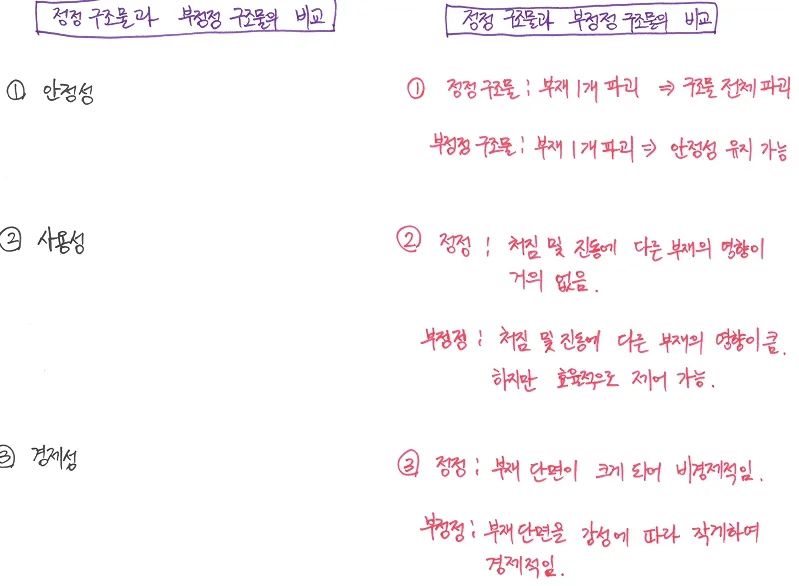 정정 구조물과 부정정 구조물의 비교
① 안정성
② 사용성
③ 경제성
정정 구조물과 부정정 구조물의 비교
① 정정구조물 : 부재 1개 파괴 ⇒ 구조물 전체 파괴
부정정 구조물 : 부재 1개 파괴 ⇒ 안정성 유지 가능
② 정정 : 처짐 및 진동에 다른 부재의 영향이
거의 없음.
부정정 : 처짐 및 진동에 다른 부재의 영향이 큼.
하지만 효율적으로 제어 가능.
③ 정정 : 부재 단면이 크게 되어 비경제적임.
부정정 : 부재단면을 강성에 따라 작게하여
경제적임.